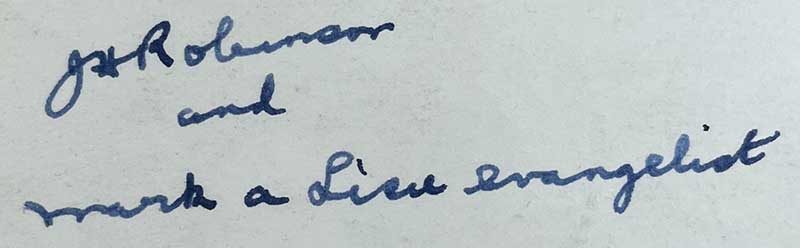 JHRobinson
and
mark a Lisu evangelist